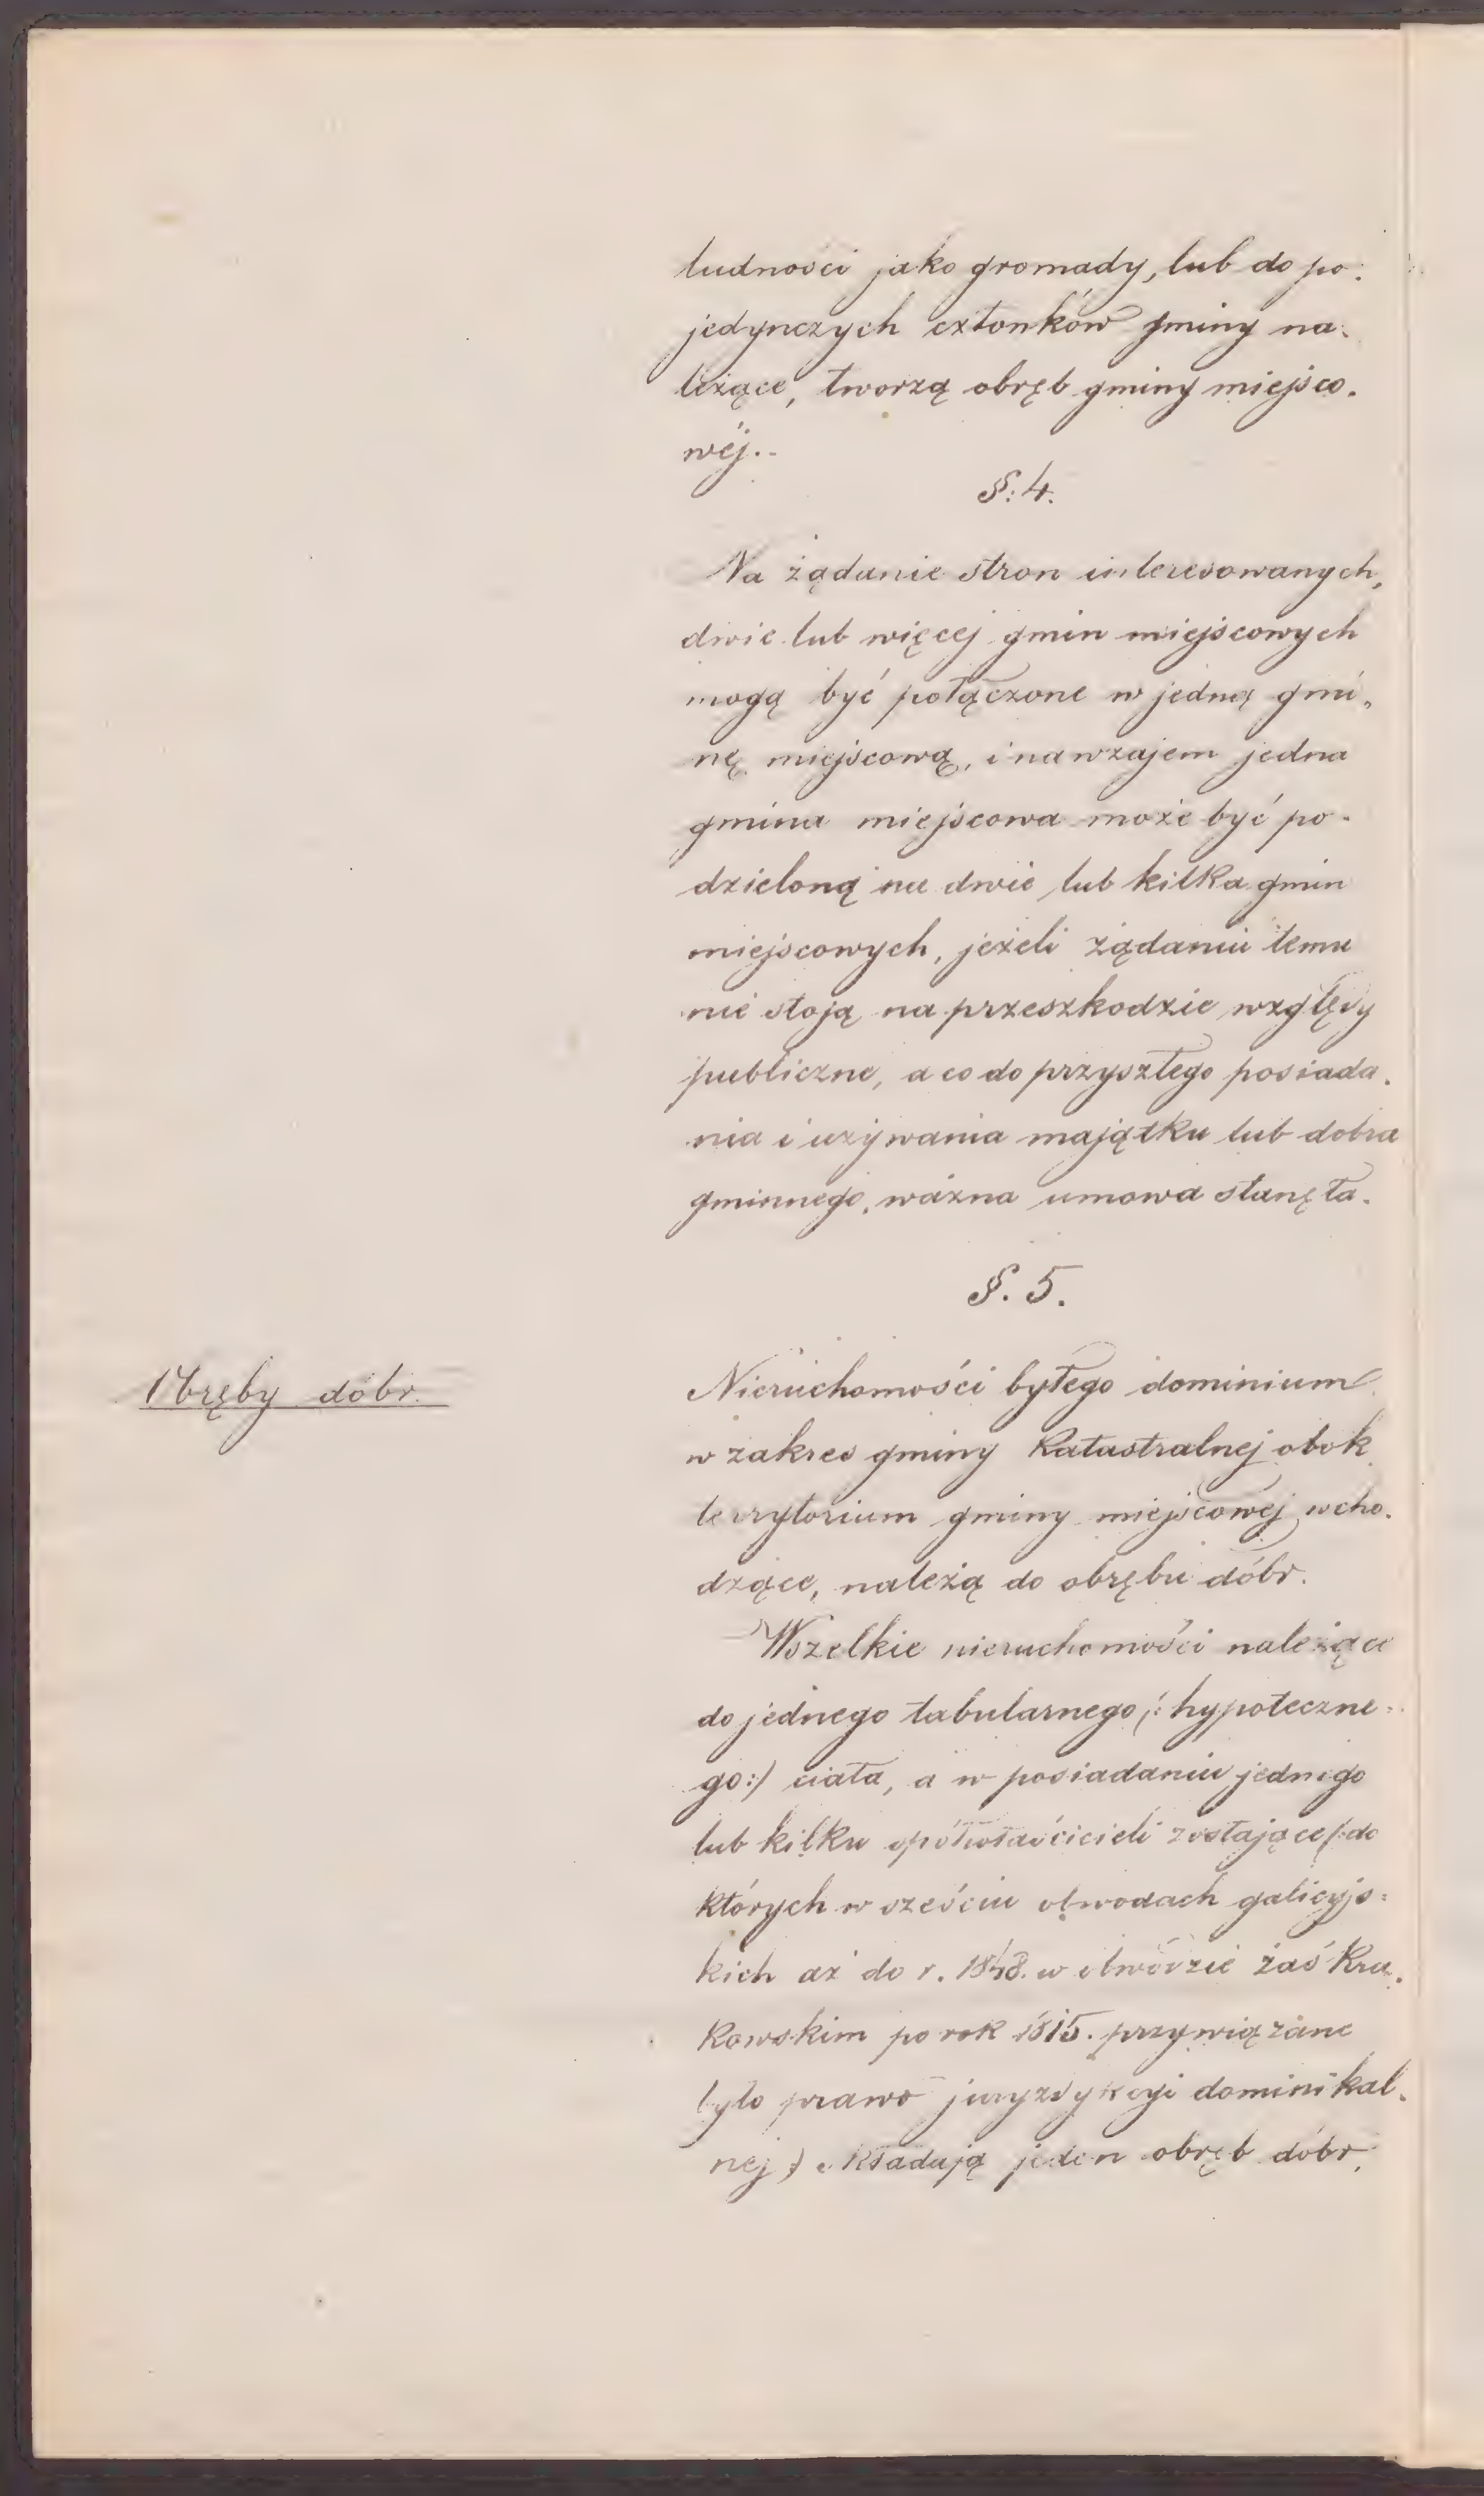 ludności jako gromady, lub do po:
jedynczych członków gminy na-
leżące, tworzą obręb gminy miejsco-
wéj..
§: 4.
Na żądanie stron interesowanych,
dwie lub więcej gmin miejscowych
mogą być połączone w jedną gmi„
nę miejscową, i nawzajem jedna
gmina miejscowa może być po-
dzieloną na dwie lub kilka gmin
miejscowych, jeżeli żądaniu temu
nie stoją na przeszkodzie względy
publiczne, a co do przyszłego posiada-
nia i używania majątku lub dobra
gminnego, ważna umowa stanęła.
§. 5.
Obręby dóbr.
Nieruchomości byłego dominium
w zakres gminy katastralnej obok
terrytorium gminy miejscowéj wcho-
dzące, należą do obrębu dóbr.
Wszelkie nieruchomości należące
do jednego tabularnego (: hypoteczne=
go:) ciała, a w posiadaniu jednego
lub kilku spółwłaścicieli zostające (: do
których w sześciu obwodach galicyjs=
kich aż do r. 1848. w obwodzie zaś Kra-
kowskim po rok 1815. przywiązane
było prawo juryzdykcyi dominikal-
nej :) składają jeden obręb dóbr.